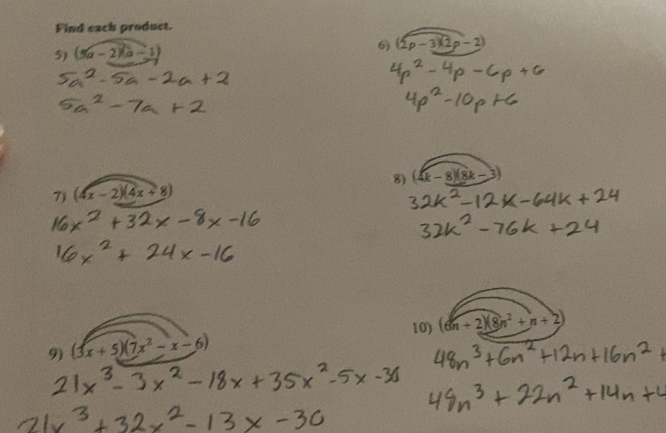 Find each product.
5) (5a − 2)(a − 1)
5a² - 5a - 2a + 2
5a² - 7a + 2
6) (2p − 3)(2p − 2)
4p² - 4p - 6p + 6
4p² - 10p + 6
7) (4x − 2)(4x + 8)
16x² + 32x - 8x - 16
16x² + 24x - 16
8) (4k − 8)(8k − 3)
32k² - 12k - 64k + 24
32k² - 76k + 24
9) (3x + 5)(7x² − x − 6)
21x³ - 3x² - 18x + 35x² - 5x - 30
21x³ + 32x² - 13x - 30
10) (6n + 2)(8n² + n + 2)
48n³ + 6n² + 12n + 16n² +
48n³ + 22n² + 14n + 4